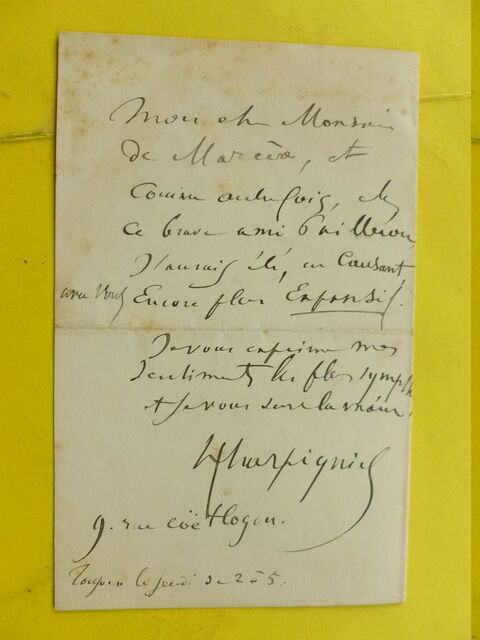 Mon cher Monsieur
de Marcère, et
Comme autrefois, chez
ce brave ami Pailleron,
J'aurais été, en Causant
avec Vous Encore plus Expansif.
Je vous exprime mes
sentiments les plus symp
et je vous serre la main.
Hharpignies
9. rue Coëtlogon.
Toujours le jeudi de 2 à 5.